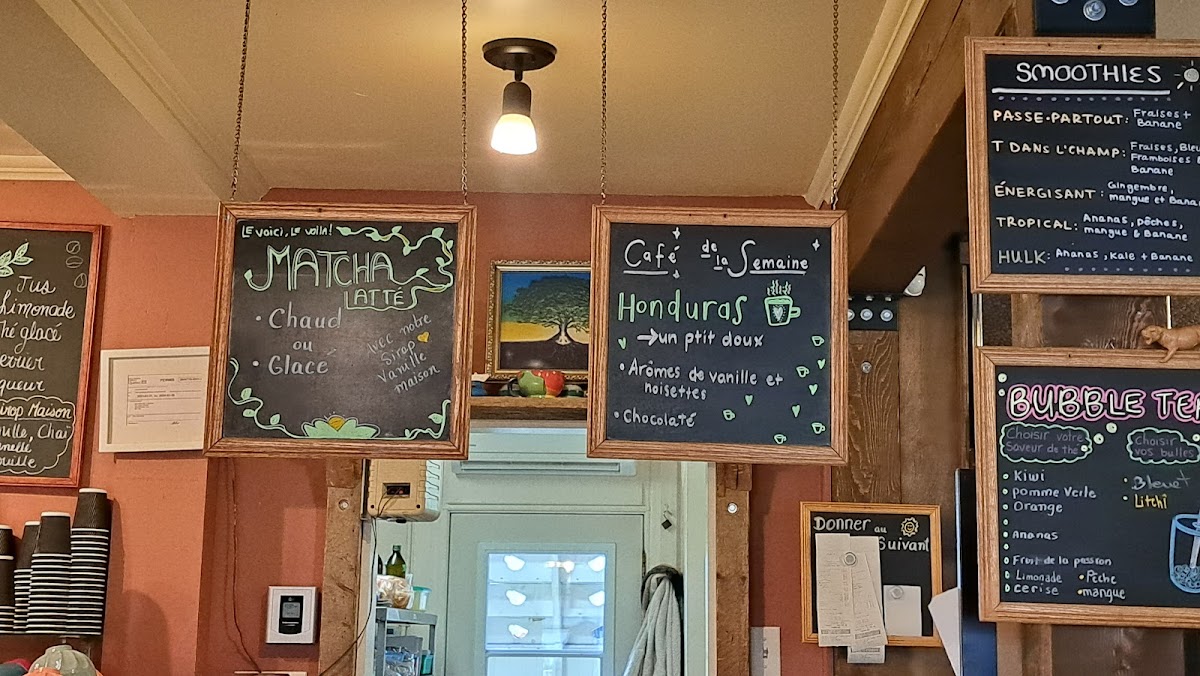 Jus
Limonade
Thé glacé
Sirop Maison
Le voici, Le voilà!
MATCHA
LATTÉS
• Chaud
ou
• Glacé
Avec notre
Sirop
Vanille
maison
Café de la Semaine
Honduras
→un ptit doux
• Arômes de vanille et
noisettes
• Chocolaté
SMOOTHIES
PASSE-PARTOUT: Fraises +
Banane
T DANS L'CHAMP: Fraises, Bleu
Framboises
Banane
ÉNERGISANT: Gingembre,
mangue et Bana
TROPICAL: Ananas, pêches,
mangue & Banane
HULK: Ananas, Kale + Banane
BUBBLE TE
Choisir votre
Saveur de thé
• Kiwi
• pomme Verte
• Orange
• Ananas
• Fruit de la passion
• Limonade
• cerise
• Pêche
• mangue
Choisir
vos bulles
• Bleuet
• Litchi
Donner au
Suivant